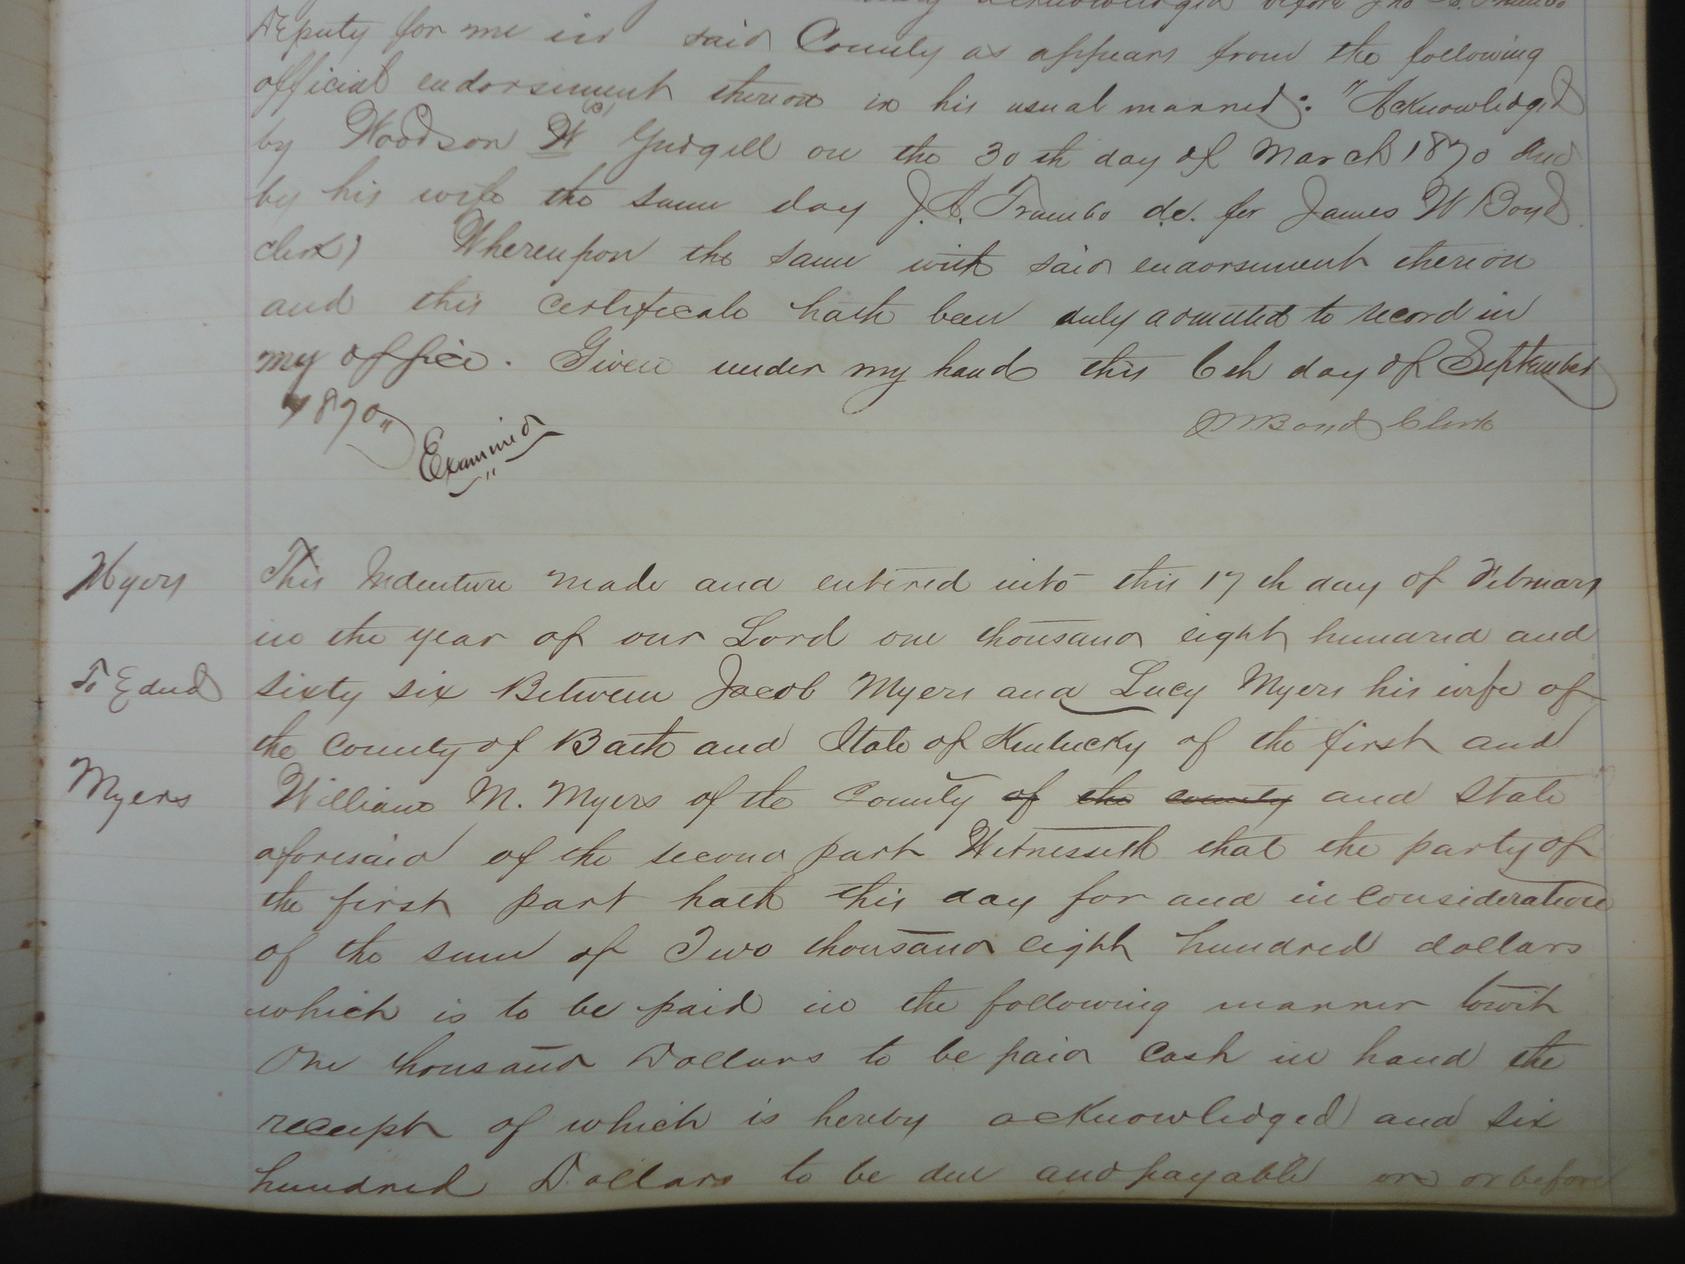 acknowledged before Jno A. Trumbo
Deputy for me in said County as appears from the following
official endorsement thereon in his usual manner: "Acknowledged
by Woodson W Gudgell on the 30th day of March 1870 and
by his wife the same day J.A. Trumbo d.c. for James W Boyd
clerk) Whereupon the same with said endorsement thereon
and this certificate hath been duly admitted to record in
my office. Given under my hand this 6th day of September
1870" Boyd Clerk
Examined
Myers This Indenture made and entered into this 17th day of February
in the year of our Lord one thousand eight hundred and
To Edud sixty six Between Jacob Myers and Lucy Myers his wife of
the County of Bath and State of Kentucky of the first and
Myers William M. Myers of the County of the county and State
aforesaid of the second part Witnesseth that the party of
the first part hath this day for and in consideration
of the sum of Two thousand eight hundred dollars
which is to be paid in the following manner towit
One thousand Dollars to be paid Cash in hand the
receipt of which is herby acknowledged and six
hundred Dollars to be due and payable on or before